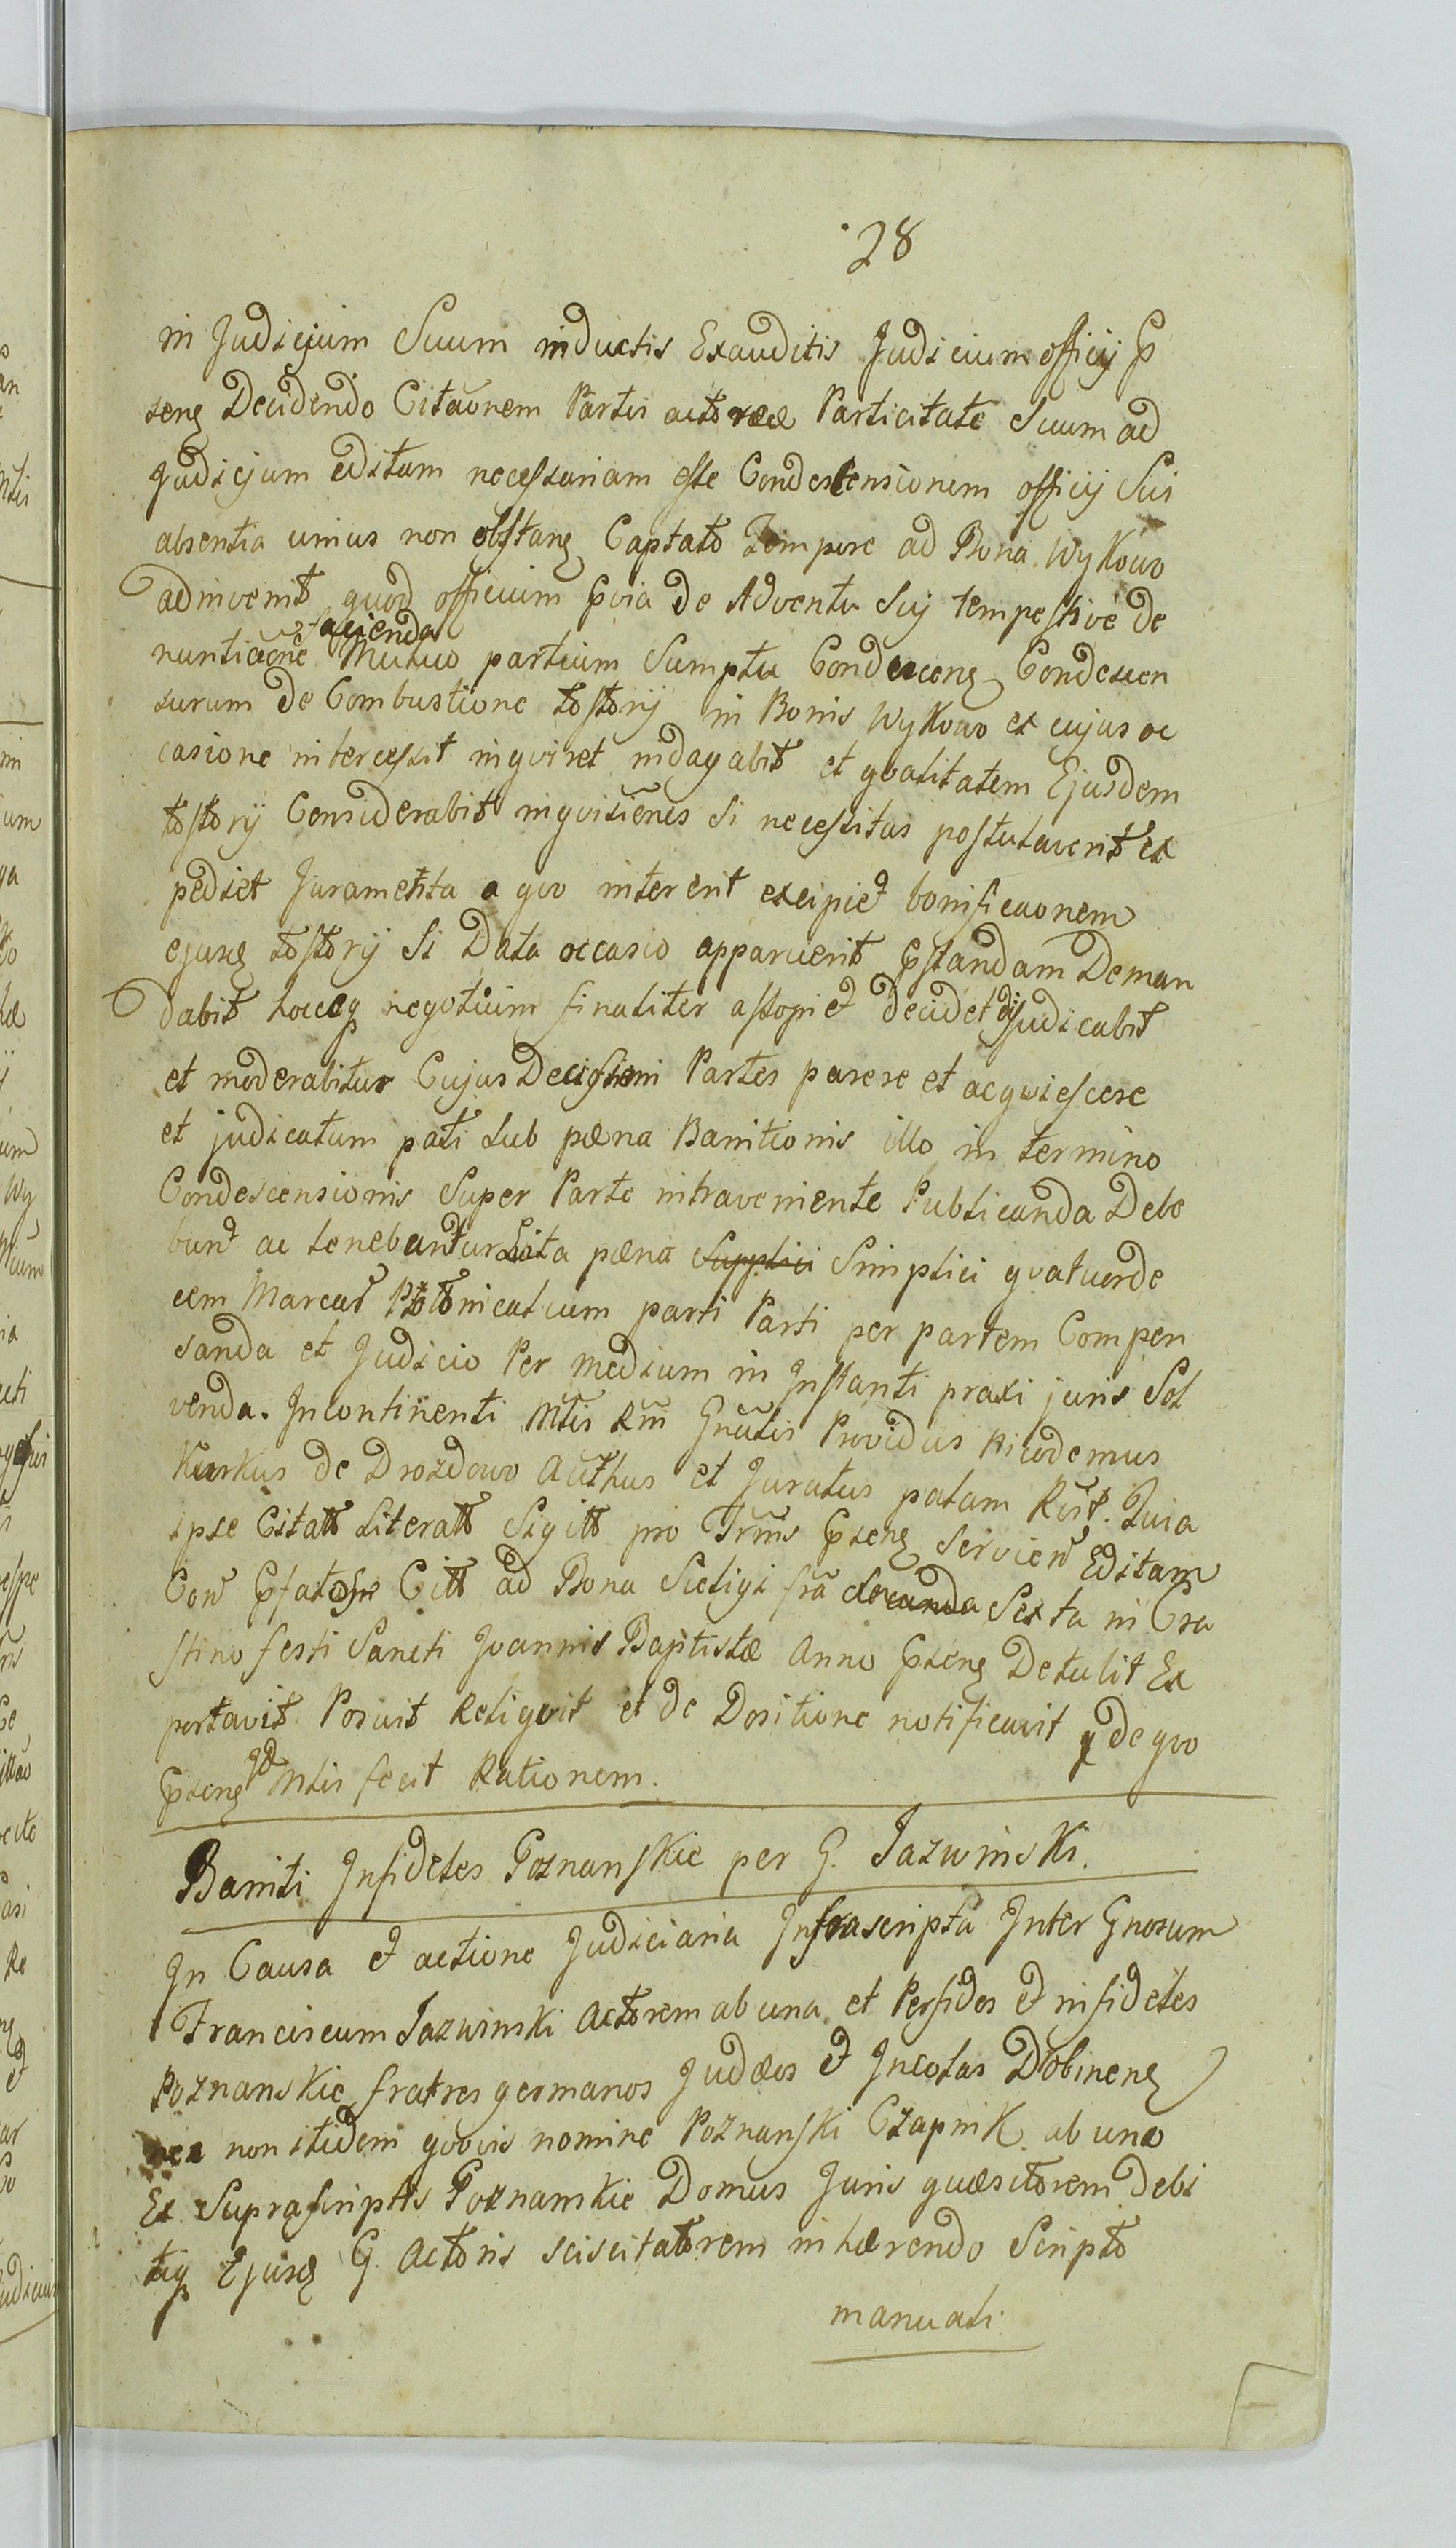 28
in Judicium Suum inductis Exauditis Judicium officij P
seng Decidendo Citaōnem Partis actoreæ Particitate Suum ad
Judicjum editam necessariam esse Condescensionem officij Sui
absentia unius non obstang Captato Tempore ad Bona Wykowo
adinvenit quod officium pvia de Adventu Suj tempestive de
facienda
nuntiaōne Mutuo partium Sumptu Condesceng Condescen
surum de Combustione tostorij in Bonis Wykowo ex cujus oc
casione intercessit inqviret indagabit et qvalitatem Ejusdem
tostorij Considerabit inqvisiēnes si necessitas postulaverit ex
pediet Juramenta a qvo intererit excipiet bonificaonem
ejusg tostorij si Data occasio apparuerit Pstandam Deman
dabit hoccq negotium finaliter assopiet decidet dijudicabit
et moderabitur Cujus Decissioni Partes parere et acqviescere
et judicatum pati sub pæna Banitionis illo in termino
Condescensionis Super Parte intraveniente Publicanda Debe
bunt ac tenebuntur Luita pæna Supplici Simplici qvatuorde
cem Marcar Ptotonicalium parti Parti per partem Compen
sanda et Judicio Per medium in Instanti praxi juris Sol
venda. Incontinenti Mtis Rm Gn̄alis Providus Nicodemus
Kurkus de Drozdowo Authus et Juratus palam Rōst. Quia
ipse Citatt Literatt Sigitt pro Trmis Pseng servien Editam
Con Pfatos Citt ad Bona Sieligi fra secunda Sexta in Cra
stino festi Sancti Joannis Baptistæ Anno Pseng Detulit Ex
portavit Posuit Reliqvit et de Positione notificavit q de qvo
Pseng Jd Mtis fecit Rationem.
Baniti Infideles Poznanskie per G. Jazwinski.
In Causa et actione Judiciaria Infrascripta Inter Gnosum
Franciscum Jazwinski Actorem ab una et Perfidos et infideles
Poznanskie fratres germanos Judæos et Incolas Dobineng
nec non itidem qvovis nomine Poznanski Czapnik ab una
Ex Suprascriptis Poznanskie Domus Juris quæsitorem Debi
tiq Ejusg G. Actoris sciscitatorem inhærendo Scripto
manuali